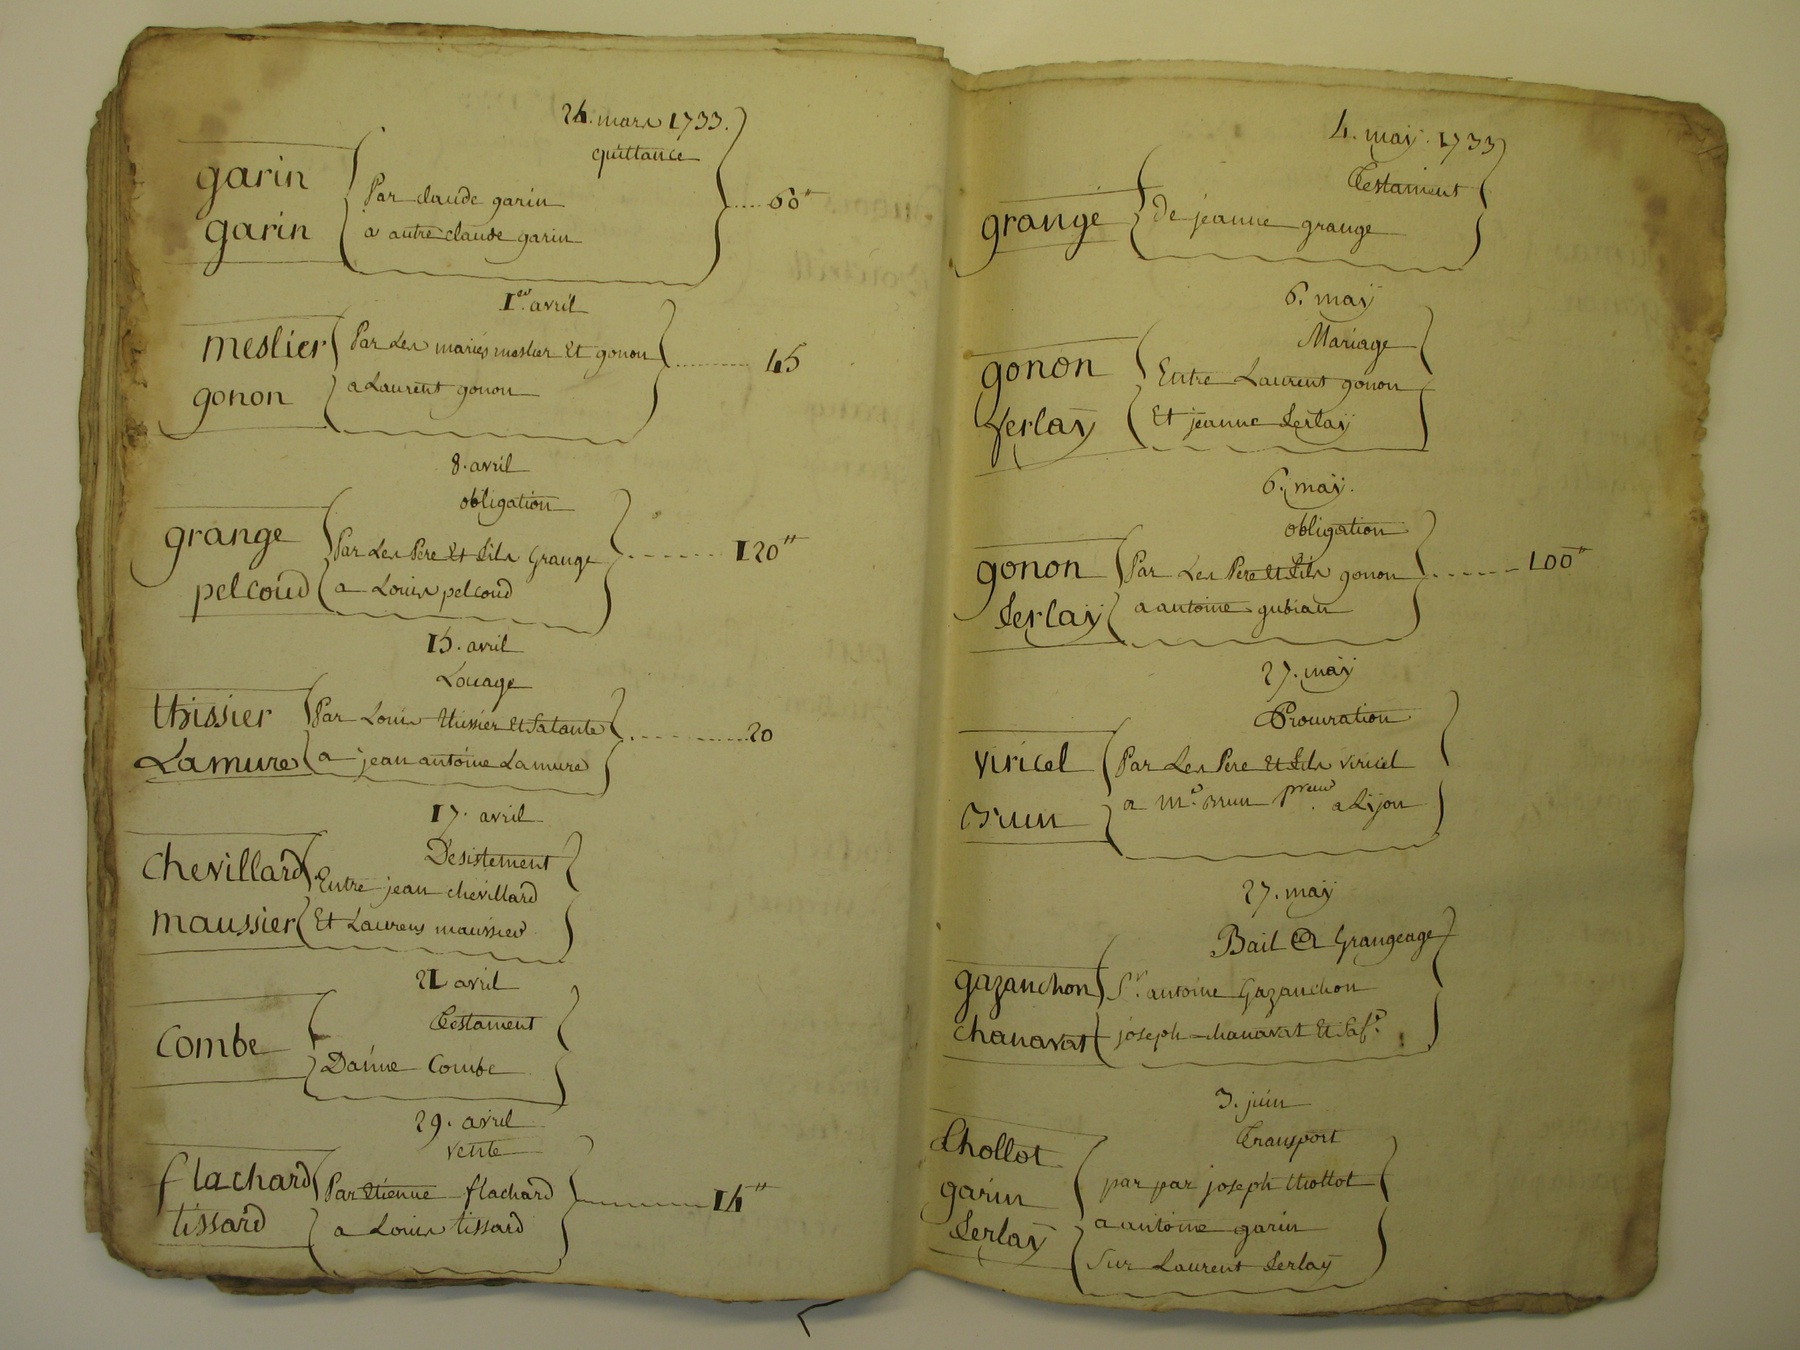 24. mars 1733.
quittance
garin
garin
Par claude garin
a autre claude garin
60"
1er. avril
meslier
gonon
Par Les mariés meslier Et gonon
a Laurent gonon
45
8. avril
obligation
grange
pelcoud
Par Les Pere Et fils Grange
a Louis pelcoud
120"
15. avril
Louage
thissier
Lamure
Par Louis thissier Et Satante
a jean antoine Lamure
20
17. avril
Desistement
Chevillard
maussier
Entre jean chevillard
Et Laurens maussier
21 avril
Testament
Combe
Combe
29. avril
vente
flachard
tissard
Par Etienne flachard
a Louis tissard
14"
4. may. 1733
Testament
grange
De jeanne grange
6. may
Mariage
gonon
ferlay
Entre Laurent gonon
Et jeanne ferlay
6. may.
obligation
gonon
ferlay
Par Les Pere Et fils gonon
a antoine gubian
100"
27. may
Procuration
viricel
Brun
Par Les Pere Et fils viricel
a Me. Brun a Lyon
27. may
Bail a Grangeage
gazanchon
chanavat
Sr. antoine Gazanchon
joseph chanavat Et Safe.
3. juin
Transport
thollot
garin
ferlay
par par joseph thollot
a antoine garin
Sur Laurent ferlay